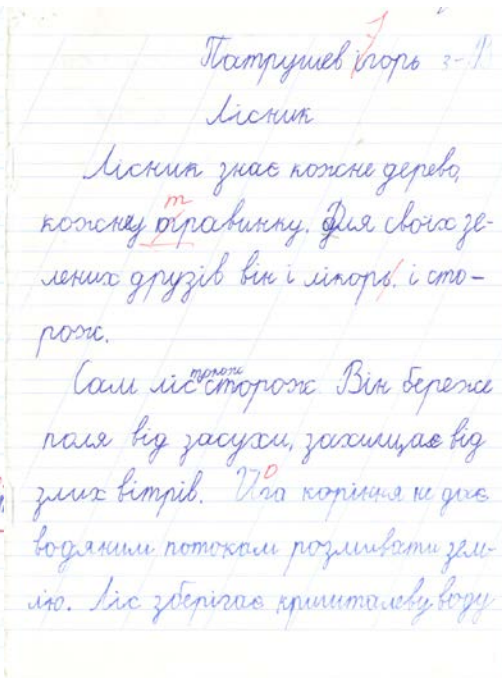 Патрушев ігорь 3-В
Лісник
Лісник знає кожне дерево,
кожну травинку. Для своїх зе-
лених друзів він і лікорь, і сто-
рож.
Сам ліс також сторож Він береже
поля від засухи, захищає від
злих вітрів. Йга коріння не дає
водяним потокам розмивати зем-
лю. Ліс зберігає кришталеву воду